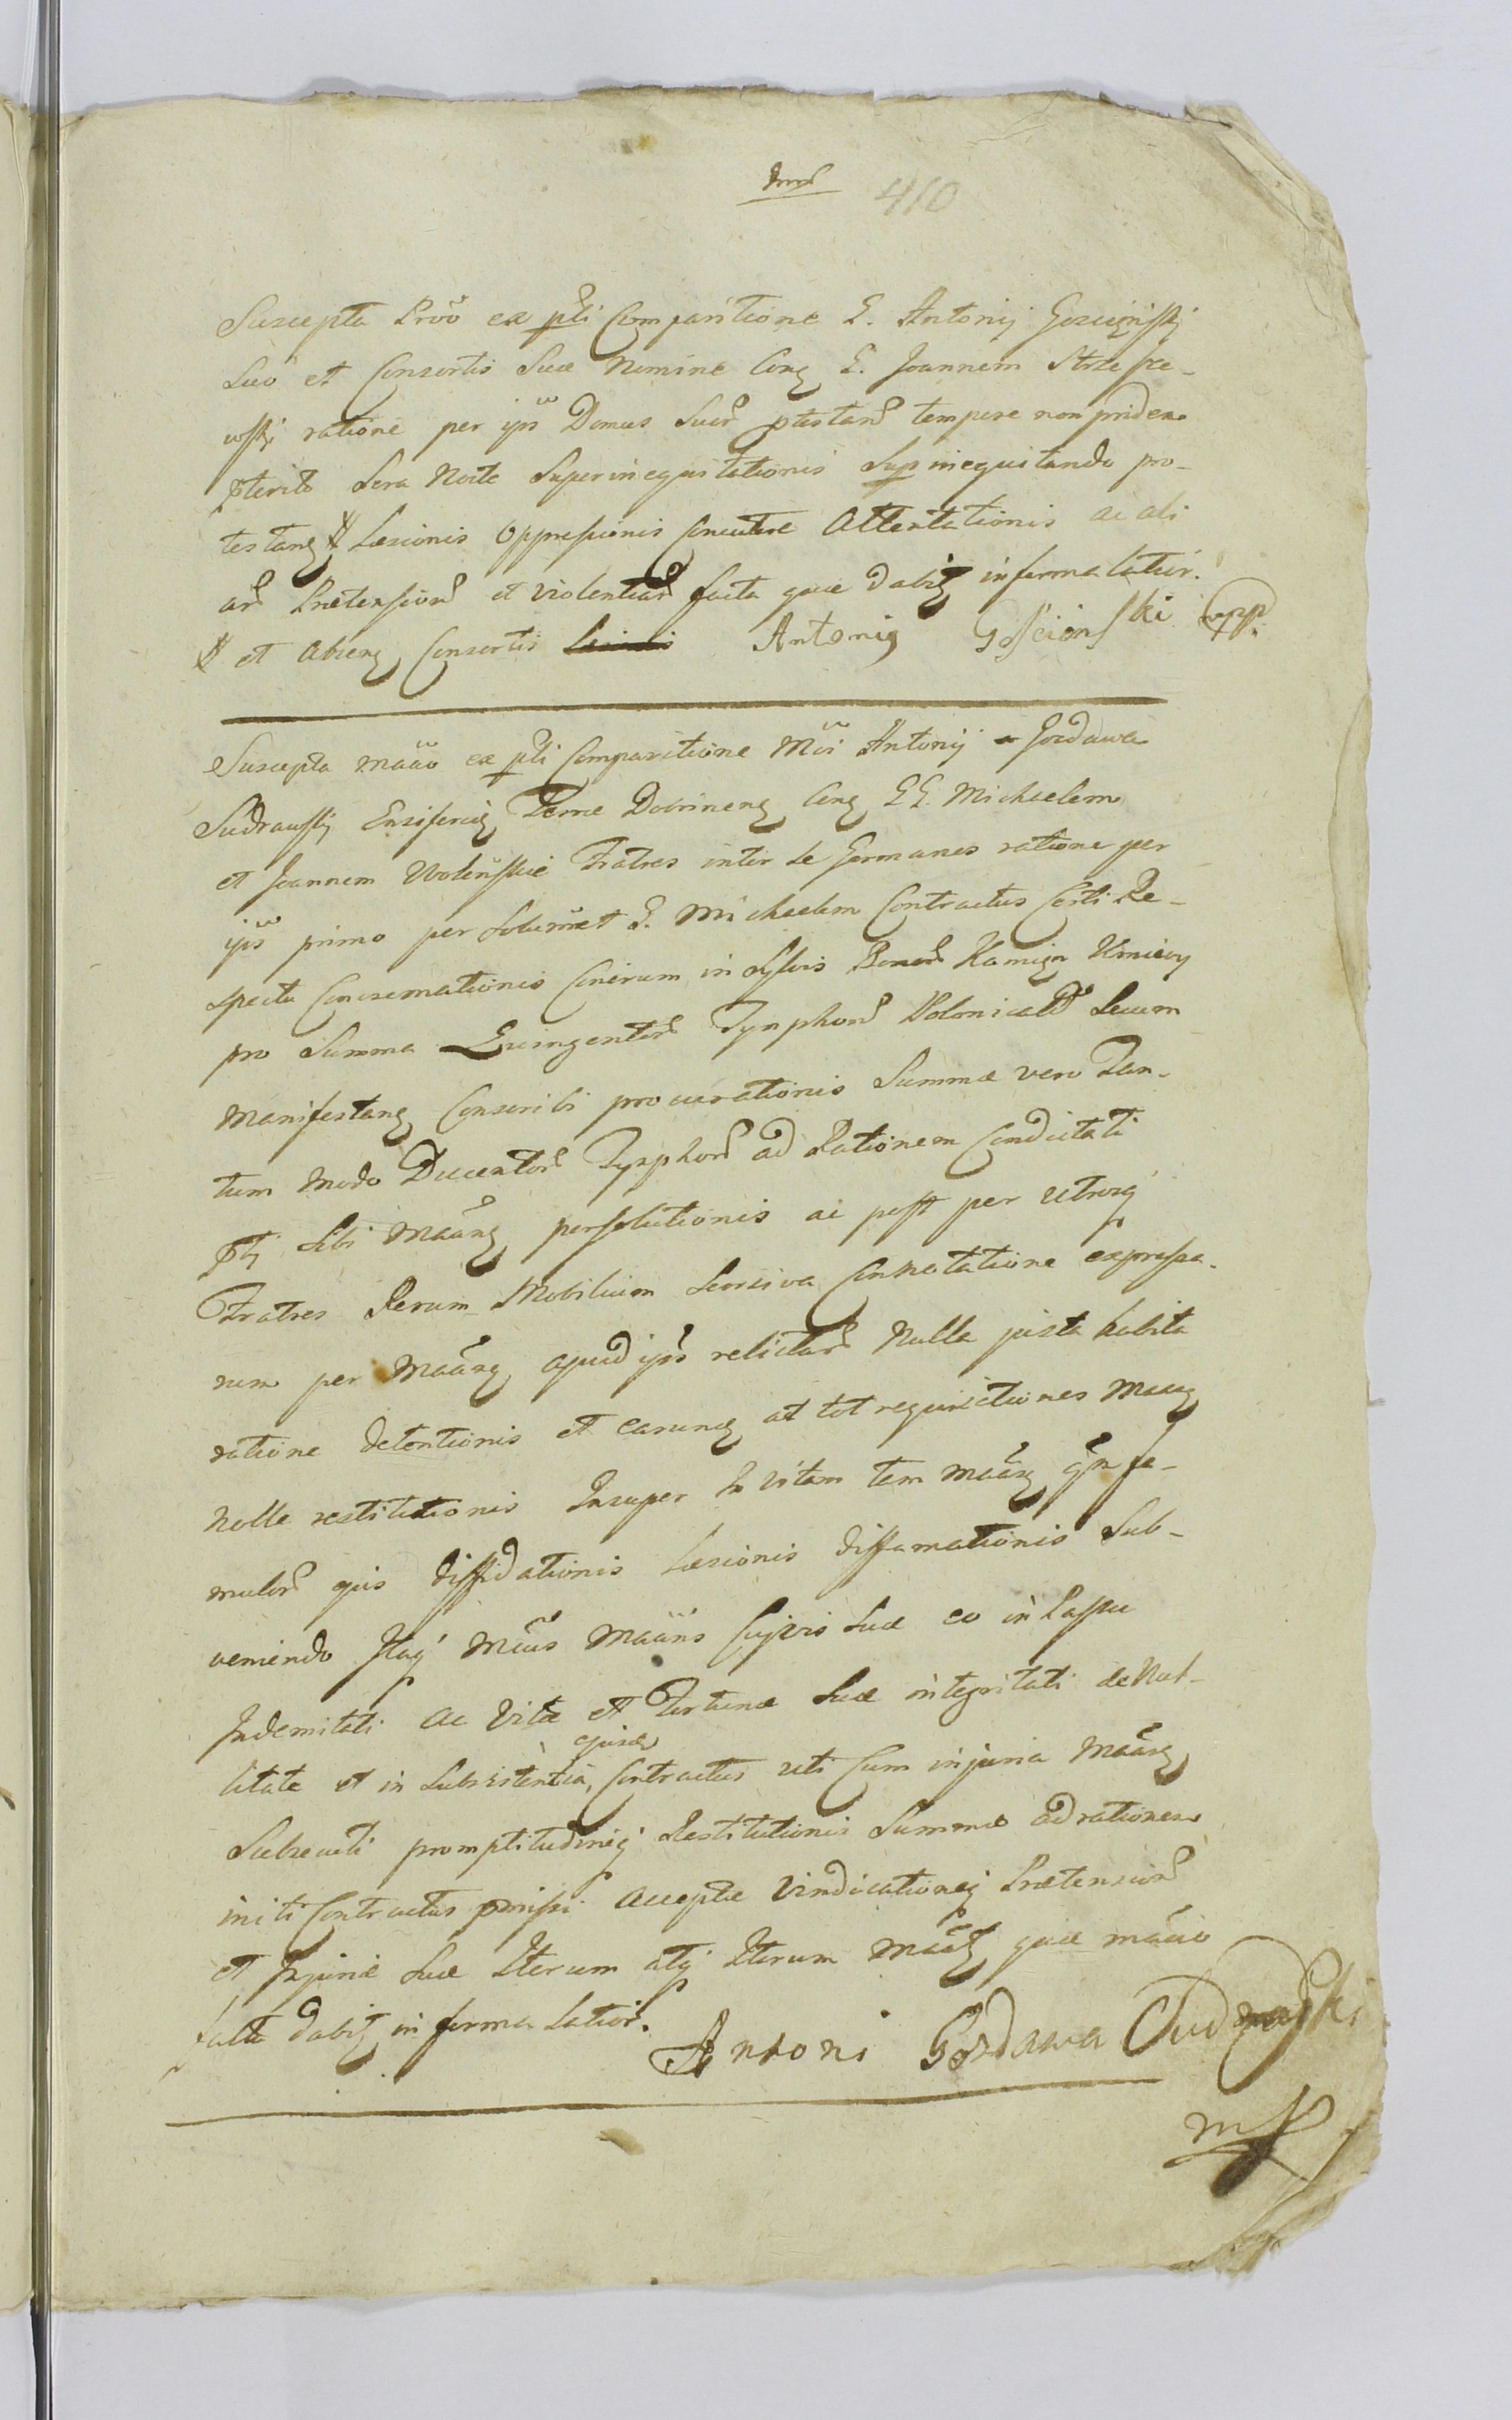 410
Suscepta Prōō ex pñti Comparitione G. Antonij Gosciąnskj
Suo et Consortis Suæ Nomine Cong G. Joannem Strzesze-
wskj ratione per ips Domus Suor ptestan tempore non pridem
ptterito Sera Nocte Superinequitationis Supinequitando pro-
testang # Læsionis Oppressionis Attentationis ac ali
ar Prætension et violentiar facta quæ dabit in forma latior.
# et Abieng Consortis Antonig Gosscionski mpp
Suscepta Mããõ ex pñti Comparitione Mci Antonij Gozdawa
Sudrauskj Ensiferig Terræ Dobrineng Cong GG. Michaelem
et Joannem Wolenskie Fratres inter se Germanos ratione per
ips primo per solumet G. Michaelem Contractus Certi Re-
spectu Concremationis Cinerum in Sylvis Bonor Kamięn Kmiecy
pro Summa Quingentor Tynphon Polonical Secum
Manifestang Conscribi procurationis Summæ vero Tan-
tum modo Ducentor Tynphon ad Rationem Condictati
ptti Sibi Mããng persolutionis ac post per utrosq
Fratres Rerum Mobilium Seorsiva Connotatione expressa-
rum per Mããng apud ips relictar Nulla justa habita
ratione detentionis et earung at tot requisitiones Maang
Nolle restitutionis Insuper in vitam tem Mããng qm fa-
mulor ejus diffidationis Læsionis diffamationis Sub-
veniendo Itaq Mcus Mããns Cujvis Suæ eo in Passu
Indemnitati ac Vitæ et Fortunæ Suæ integritati de Nul-
litate et in Subsistentia ejusd Contractus uti Cum injuria Mããng
Subsecuti promptitudineq Restitutionis Summæ ad rationem
initi Contractus pmissi Acceptæ Vindicationeq Prætension
et Injuriæ Suæ Iterum atq Iterum Mããt quæ mããõ
facta dabit in forma latior.
Antoni Gozdawa Sudrawski
mp